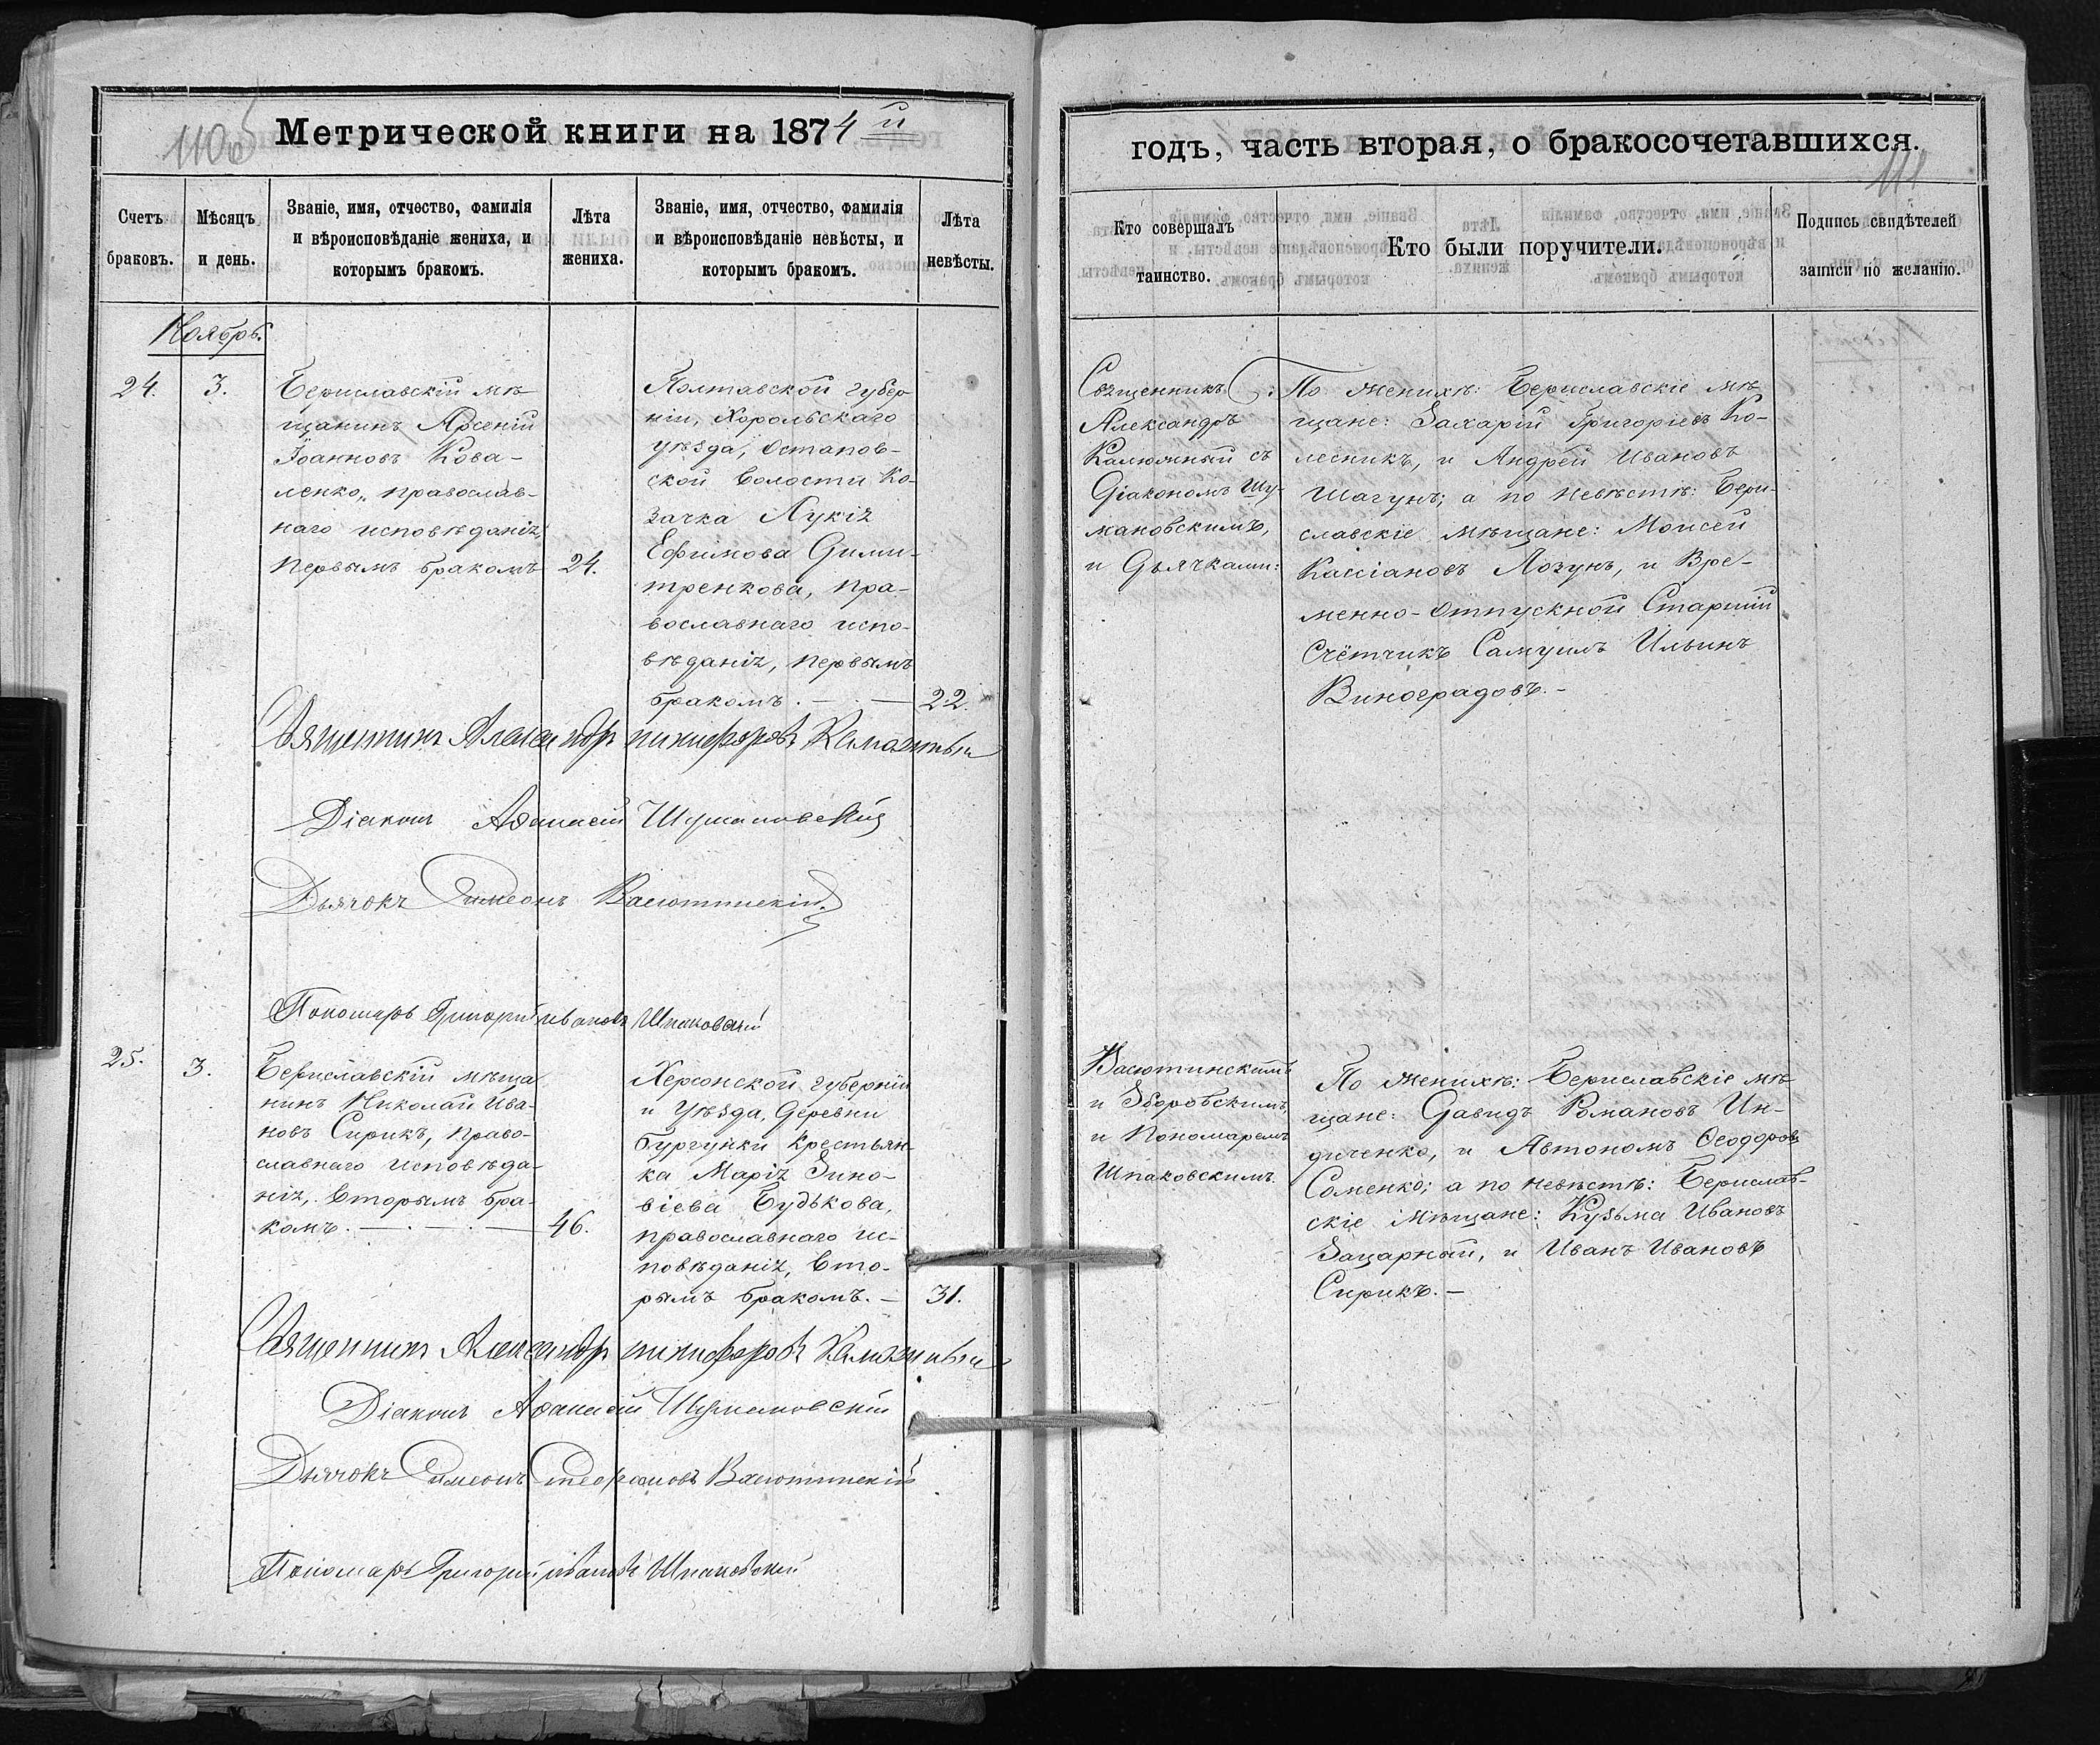 110 об
Метрической книги на 1874 й
Счетъ браковъ.
Мѣсяцъ и день.
Званіе, имя, отчество, фамилія
и вѣроисповѣданіе жениха, и
которымъ бракомъ.
Лѣта
жениха.
Званіе, имя, отчество, фамилія
и вѣроисповѣданіе невѣсты, и
которымъ бракомъ.
Лѣта
невѣсты.
Ноябрь.
24.
3.
Бериславскій мѣ
щанинъ Арсеній
Іоанновъ Кова-
ленко, православ-
наго исповѣданія,
первымъ бракомъ
24.
Полтавской губер
ніи, Хорольскаго
уѣзда, Остапов-
ской волости ко-
зачка Лукія
Ефимова Дими-
тренкова, пра-
вославнаго испо-
вѣданія, первымъ
бракомъ. —
22.
Священникъ Александръ Никифоровъ Калюжный
Діаконъ Афанасій Шумановскій
Дьячокъ Симеонъ Васютинскій
Пономарь Григорій Ивановъ Шпаковскій
25.
3.
Бериславскій мѣща
нинъ Николай Ива-
новъ Сирикъ, право-
славнаго исповѣда-
нія, вторымъ бра-
комъ. —
46.
Херсонской губерніи
и уѣзда, деревни
Бургунки крестьян-
ка Марія Зино-
віева Будькова,
православнаго ис-
повѣданія, вто-
рымъ бракомъ. —
31.
Священникъ Александръ Никифоровъ Калюжный
Діаконъ Афанасій Шумановскій
Дьячокъ Симеонъ Стефановъ Васютинскій
Пономарь Григорій Ивановъ Шпаковскій
годъ, часть вторая, о бракосочетавшихся.
111
Кто совершалъ
таинство.
Кто были поручители.
Подпись свидѣтелей
записи по желанію.
Священникъ
Александръ
Калюжный съ
Діакономъ Шу-
мановскимъ,
и Дьячками:
По женихѣ: Бериславскіе мѣ
щане: Захарій Григоріевъ Ко-
лесникъ, и Андрей Ивановъ
Шагунъ; а по невѣстѣ: Бери-
славскіе мѣщане: Моисей
Кассіановъ Лозунъ, и Вре-
менно-отпускной Старшій
Счётчикъ Самуилъ Ильинъ
Виноградовъ. —
Васютинскимъ
и Зборовскимъ,
и Пономаремъ
Шпаковскимъ.
По женихѣ: Бериславскіе мѣ
щане: Давидъ Романовъ Ин-
диченко, и Автономъ Ѳеодоровъ
Соменко; а по невѣстѣ: Берислав-
скіе мѣщане: Кузьма Ивановъ
Зацарный, и Иванъ Ивановъ
Сирикъ. —